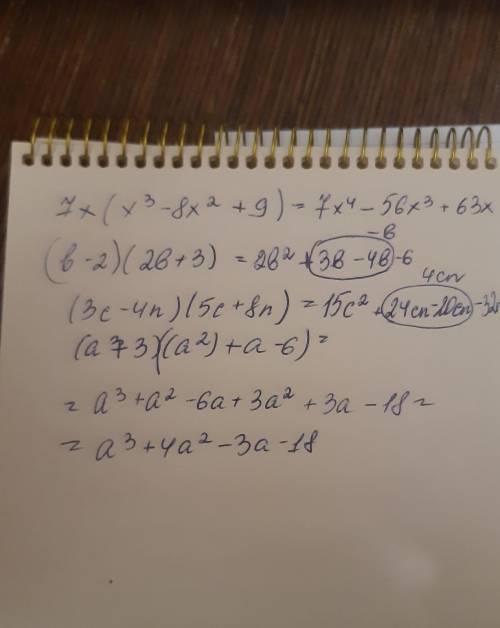 7x(x³-8x²+9)=7x⁴-56x³+63x
-в
(в-2)(2в+3)=2в²+3в-4в-6
4cn
(3c-4n)(5c+8n)=15c²+24cn-20cn-32
(a+3)(a²)+a-6)=
=a³+a²-6a+3a²+3a-18=
=a³+4a²-3a-18